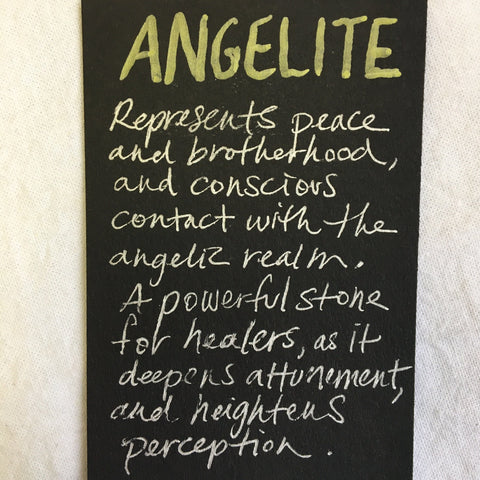 ANGELITE
Represents peace
and brotherhood,
and conscious
contact with the
angelic realm.
A powerful stone
for healers, as it
deepens attunement,
and heightens
perception.